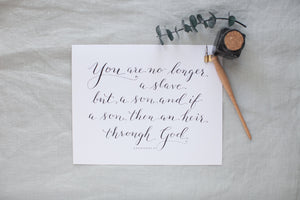 You are no longer
a slave
but a son and if
a son then an heir
through God.